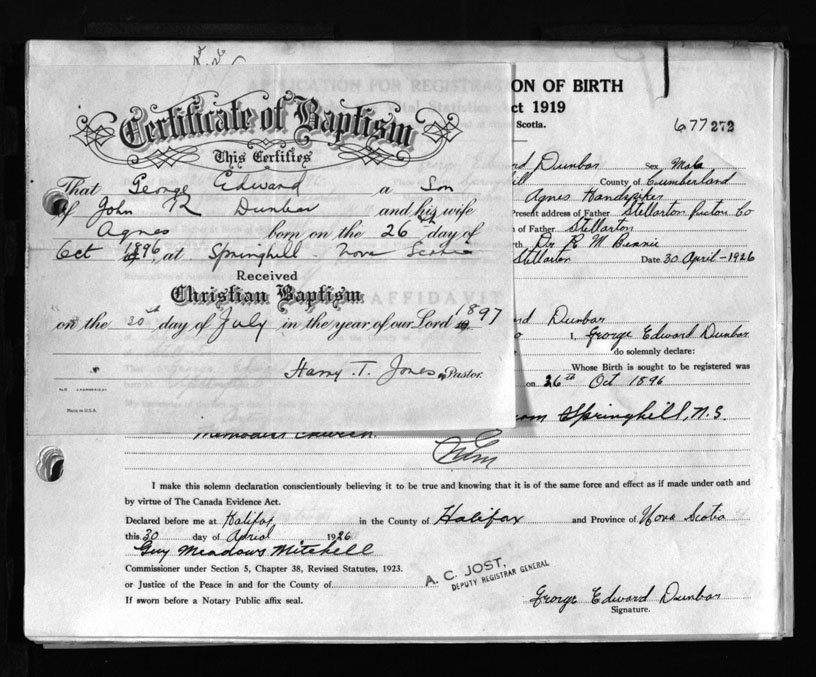 ON OF BIRTH
ct 1919
Scotia.
677272
Certificate of Baptism
This Certifies
That George Edward a Son
of John R Dunbar and his wife
Agnes born on the 26th day of
Oct 1896, at Springhill Nova Scotia
Received
Christian Baptism
on the 30th day of July in the year of our Lord 1897
Harry T. Jones Pastor.
Made in U.S.A.
rd Dunbar Sex Male
ill County of Cumberland
Agnes Handspiker
Present address of Father Stellarton Pictou Co
of Father Stellarton
rth Dr R M Bennie
Stellarton Date 30 April-1926
AFFIDAVIT
rd Dunbar
I, George Edward Dunbar
do solemnly declare:
Whose Birth is sought to be registered was
on 26th Oct 1896
from Springhill, N.S.
Methodist Church.
I make this solemn declaration conscientiously believing it to be true and knowing that it is of the same force and effect as if made under oath and
by virtue of The Canada Evidence Act.
Declared before me at Halifax, in the County of Halifax and Province of Nova Scotia
this 30 day of April 1926
Guy Meadows Mitchell
Commissioner under Section 5, Chapter 38, Revised Statutes, 1923.
or Justice of the Peace in and for the County of
If sworn before a Notary Public affix seal.
A. C. JOST,
DEPUTY REGISTRAR GENERAL
George Edward Dunbar
Signature.